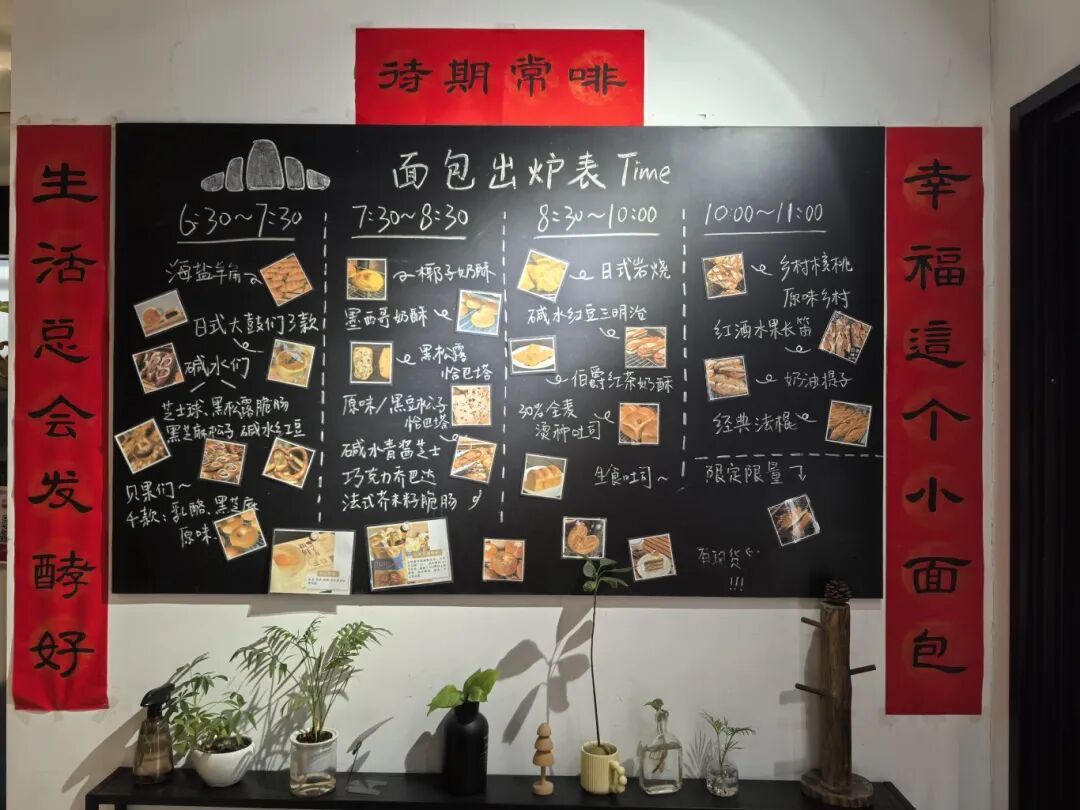 待期常啡
生活总会发酵好
幸福這个小面包
面包出炉表 Time
6:30~7:30
海盐羊角
日式太鼓们3款
碱水们
芝士球、黑松露脆肠
黑芝麻松子 碱水红豆
贝果们~
千款:乳酪、黑芝麻
原味、
7:30~8:30
椰子奶酥
墨西哥奶酥
黑松露
恰巴塔
原味/黑豆松子
恰巴塔
碱水青酱芝士
巧克力乔巴达
法式芥末籽脆肠
8:30~10:00
日式岩烧
碱水红豆三明治
伯爵红茶奶酥
30%全麦
烫种吐司
生食吐司~
10:00~11:00
乡村核桃
原味乡村
红酒水果长笛
奶油提子
经典法棍
限定限量
有现货
!!!